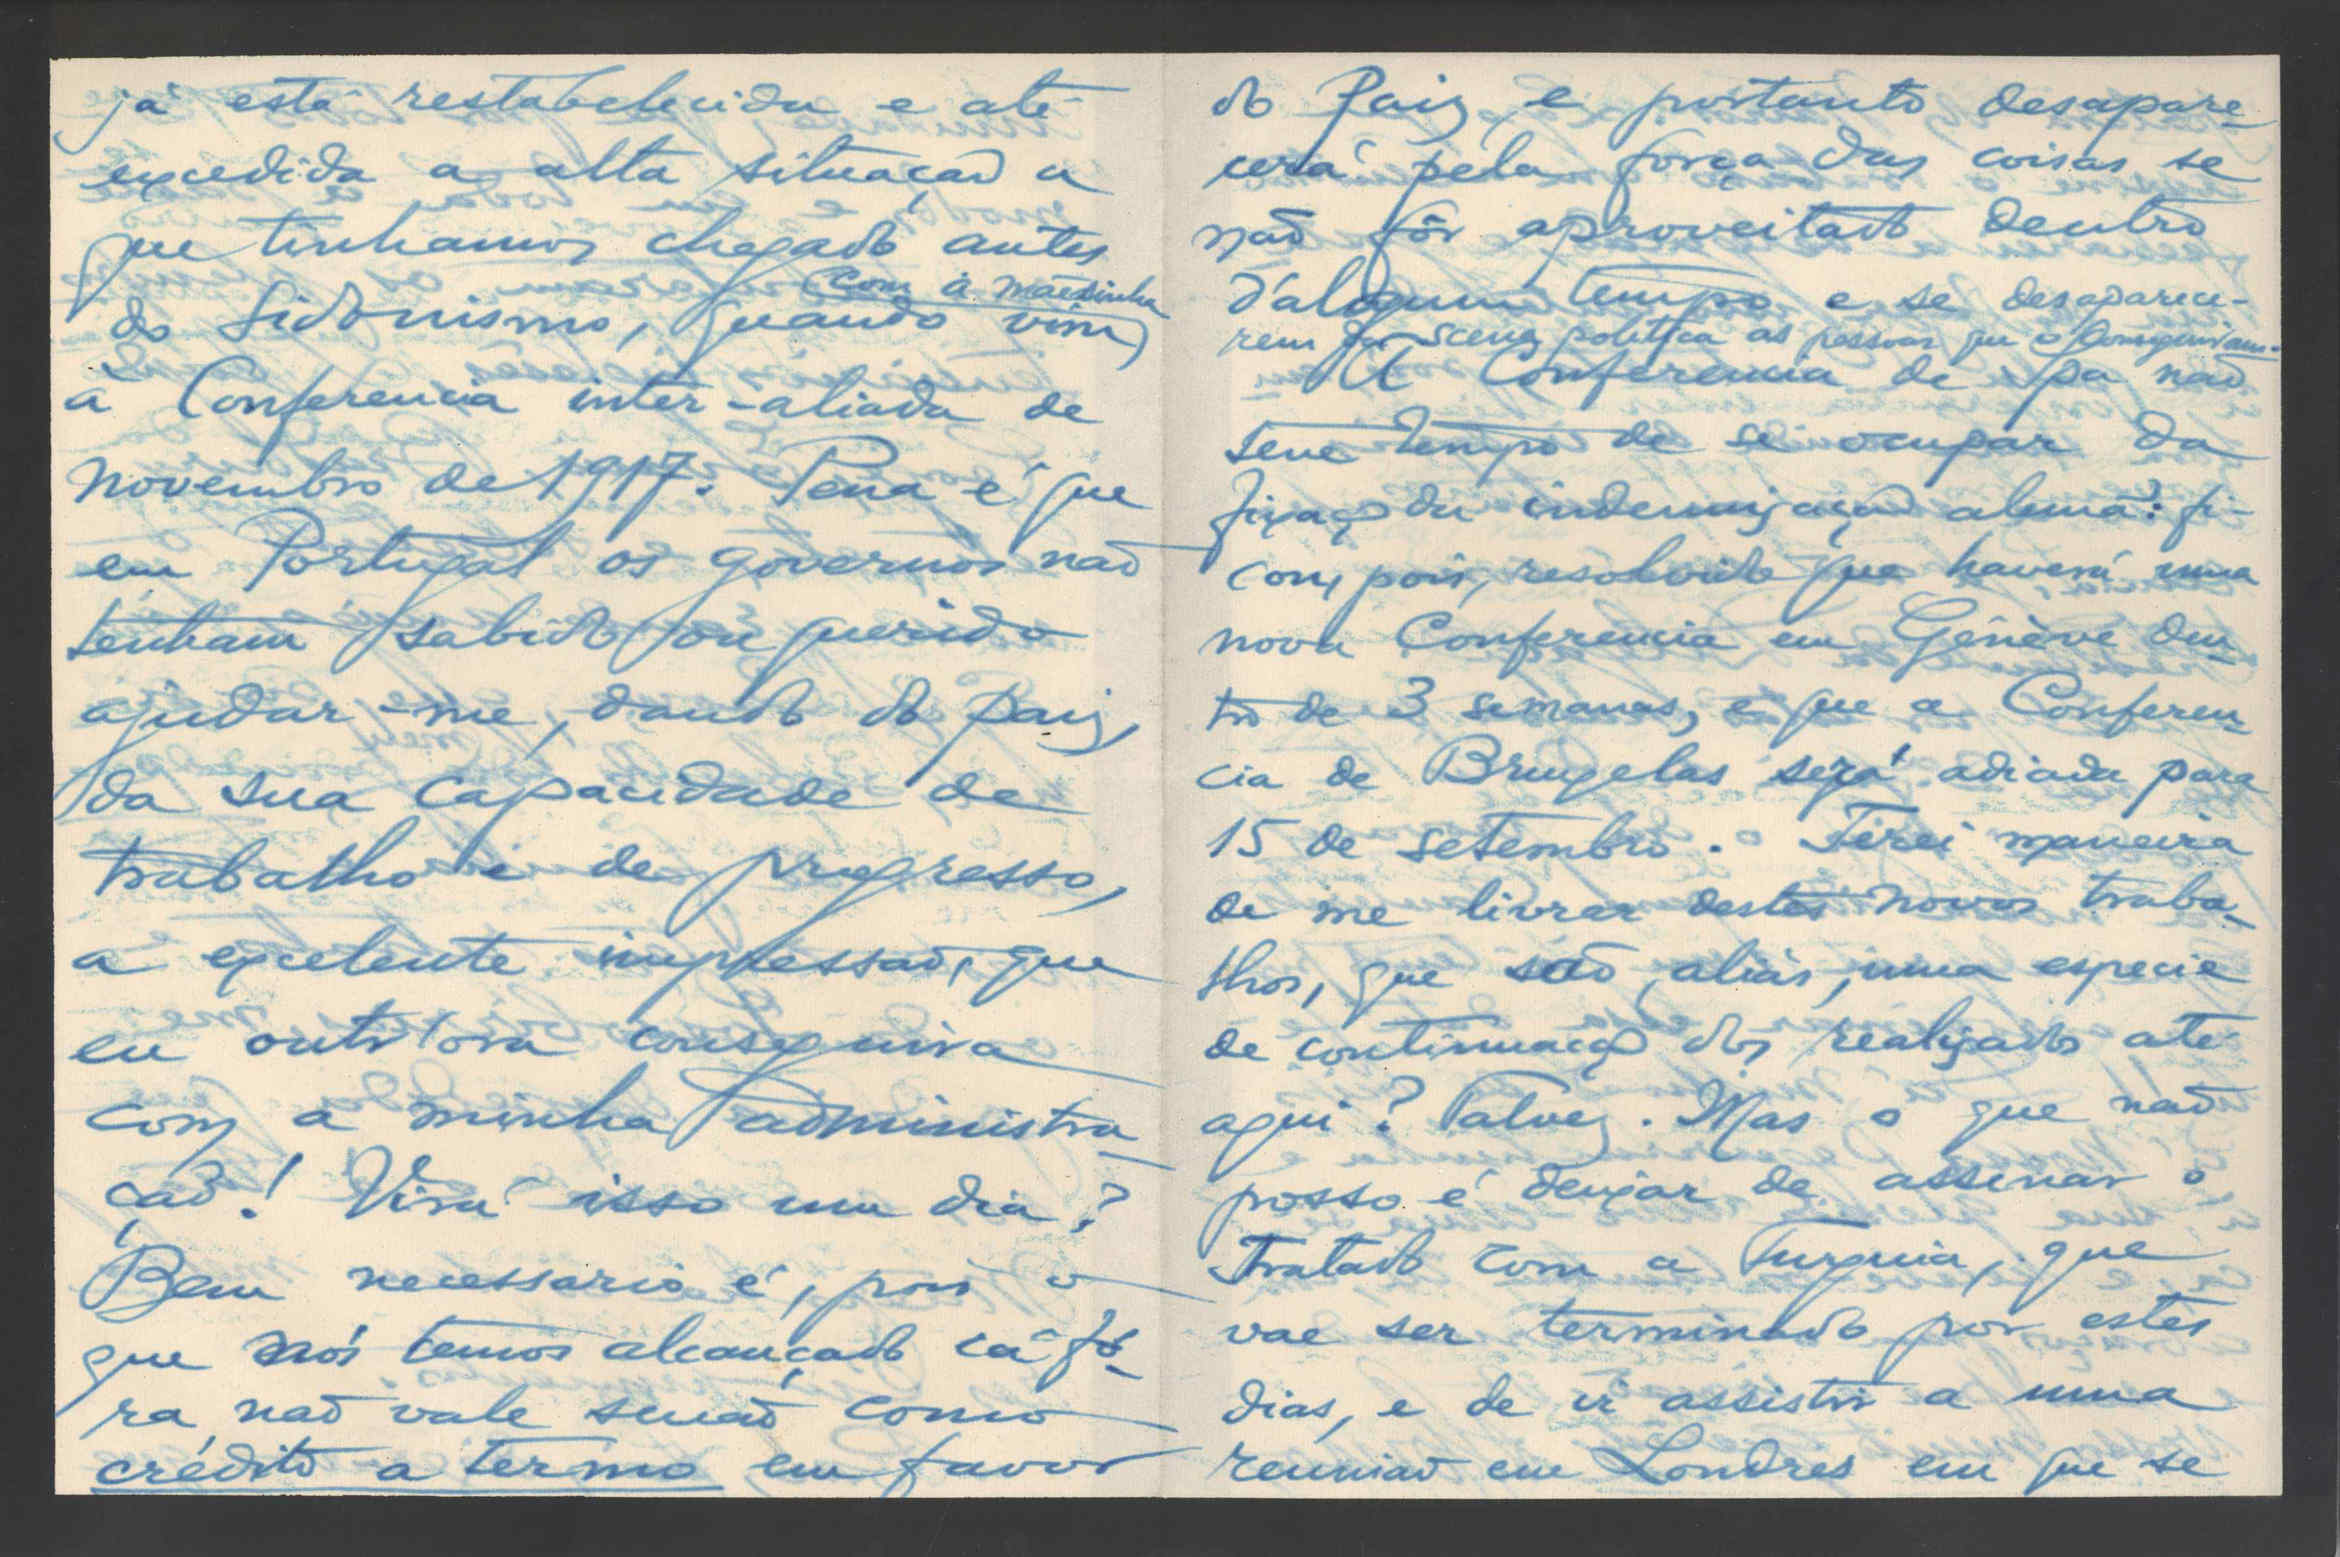 já está restabelecida e até
excedida a alta situação a
que tinhamos chegado antes
do Sidonismo, quando vim
(com a mãesinha)
á Conferencia inter-aliada de
Novembro de 1917. Pena é que
em Portugal os governos não
tenham sabido ou querido
ajudar-me, dando do paiz,
da sua capacidade de
trabalho e de progresso,
a excelente impressão, que
eu outr'ora conseguira
com a minha administra-
ção! Virá isso um dia?
Bem necessario é, pois o
que nós temos alcançado cá fó-
ra, não vale senão como
crédito a termo em favor
do Paiz, e portanto desapare-
cerá pela força das coisas se
não fôr aproveitado dentro
d'algum tempo e se desaparece-
rem da scena politica as pessoas que o conseguiram.
A Conferencia de Spa não
teve tempo de se ocupar da
fixação da indemnização alemã: fi-
cou, pois, resolvido que haverá uma
nova Conferencia em Génève den-
tro de 3 semanas, e que a Conferen-
cia de Bruxelas será adiada para
15 de setembro. Terei maneira
de me livrar destes novos traba-
lhos, que são, aliás, uma especie
de continuação dos realizados até
aqui? Talvez. Mas o que não
posso é deixar de assinar o
Tratado com a Turquia, que
vae ser terminado por estes
dias, e de ir assistir a uma
reunião em Londres em que se